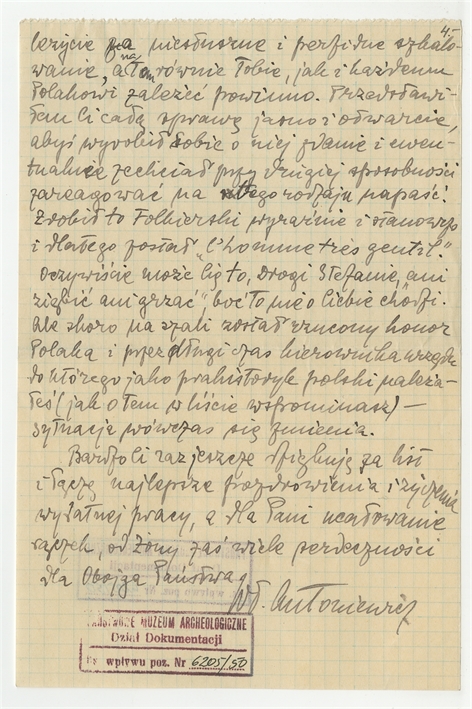 4.-
leżycie za niesłuszne i perfidne szkalo-
wanie, a na tem równie Tobie, jak i każdemu
Polakowi zależeć powinno. Przedstawi-
łem Ci całą sprawę jasno i otwarcie,
abyś wyrobił sobie o niej zdanie i ewen-
tualnie zechciał przy drugiej sposobności
zareagować na tego rodzaju napaść.
Zrobił to Folkierski wyraźnie i stanowczo
i dlatego został "l'homme très gentil".
Oczywiście może Cię to, drogi Stefanie, "ani
ziębić ani grzać" bo to nie o Ciebie chodzi.
Ale skoro na szali został rzucony honor
Polaka i przez długi czas kierownika urzędu
do którego jako prahistoryk polski należa-
łeś (jak o tem w liście wspominasz) –
sytuacja wówczas się zmienia.
Bardzo Ci raz jeszcze dziękuję za list
i łączę najlepsze pozdrowienia i życzenia
wydatnej pracy, a dla Pani ucałowanie
rączek, od żony zaś wiele serdeczności
dla Obojga Państwa
Wł. Antoniewicz
PAŃSTWOWE MUZEUM ARCHEOLOGICZNE
Dział Dokumentacji
Ks. wpływu poz. Nr 6205/50